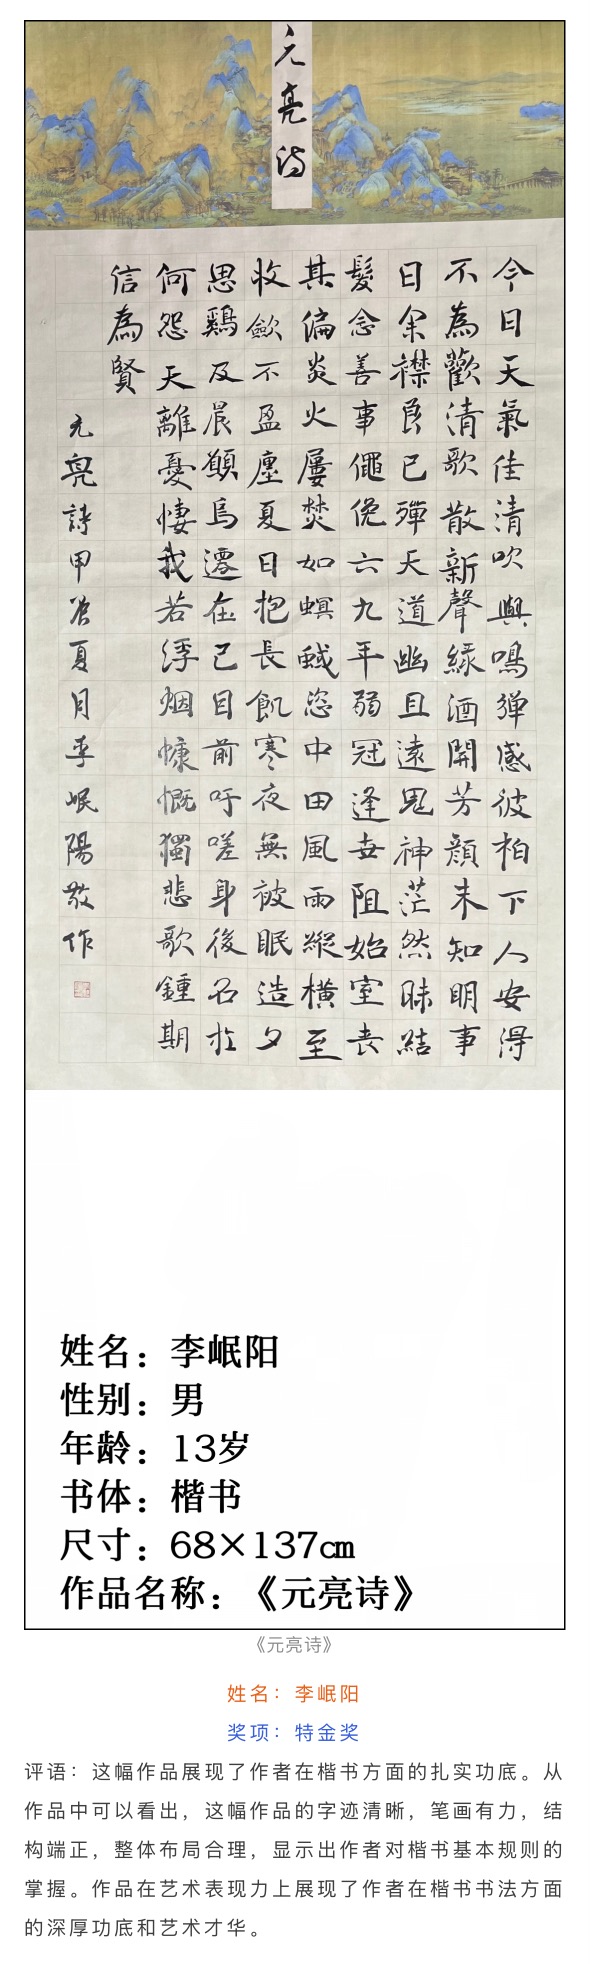 元亮诗
今日天氣佳清吹與鳴彈感彼柏下人安得
不為歡清歌散新聲綠酒開芳顏未知明事
日余襟良已殫天道幽且遠鬼神茫然昧結
髮念善事僶俛六九年弱冠逢世阻始室丧
其偏炎火屢焚如螟蜮恣中田風雨縱橫至
收斂不盈廛夏日抱長飢寒夜無被眠造夕
思鷄及晨願烏遷在己目前吁嗟身後名於
何怨天離憂悽我若浮烟慷慨獨悲歌鍾期
信為賢
元亮詩甲辰夏月李岷陽敬作
姓名：李岷阳
性别：男
年龄：13岁
书体：楷书
尺寸：68×137cm
作品名称：《元亮诗》
《元亮诗》
姓名：李岷阳
奖项：特金奖
评语：这幅作品展现了作者在楷书方面的扎实功底。从
作品中可以看出，这幅作品的字迹清晰，笔画有力，结
构端正，整体布局合理，显示出作者对楷书基本规则的
掌握。作品在艺术表现力上展现了作者在楷书书法方面
的深厚功底和艺术才华。